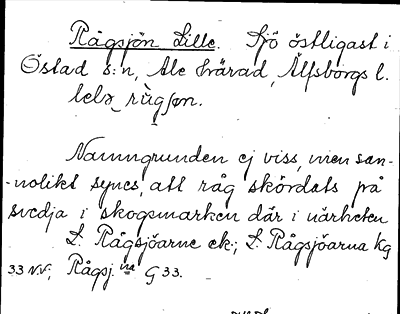 Rågsjön Lille. Sjö östligast i
Östad s:n, Ale härad, Älfsborgs l.
lelə rùgʃøn.
Namngrunden ej viss, men san-
-nolikt synes, att råg skördats på
svedja i skogsmarken där i närheten
L. Rågsjöarne ek.; L. Rågsjöarna Kg
33 NV; Rågsj. na G 33.